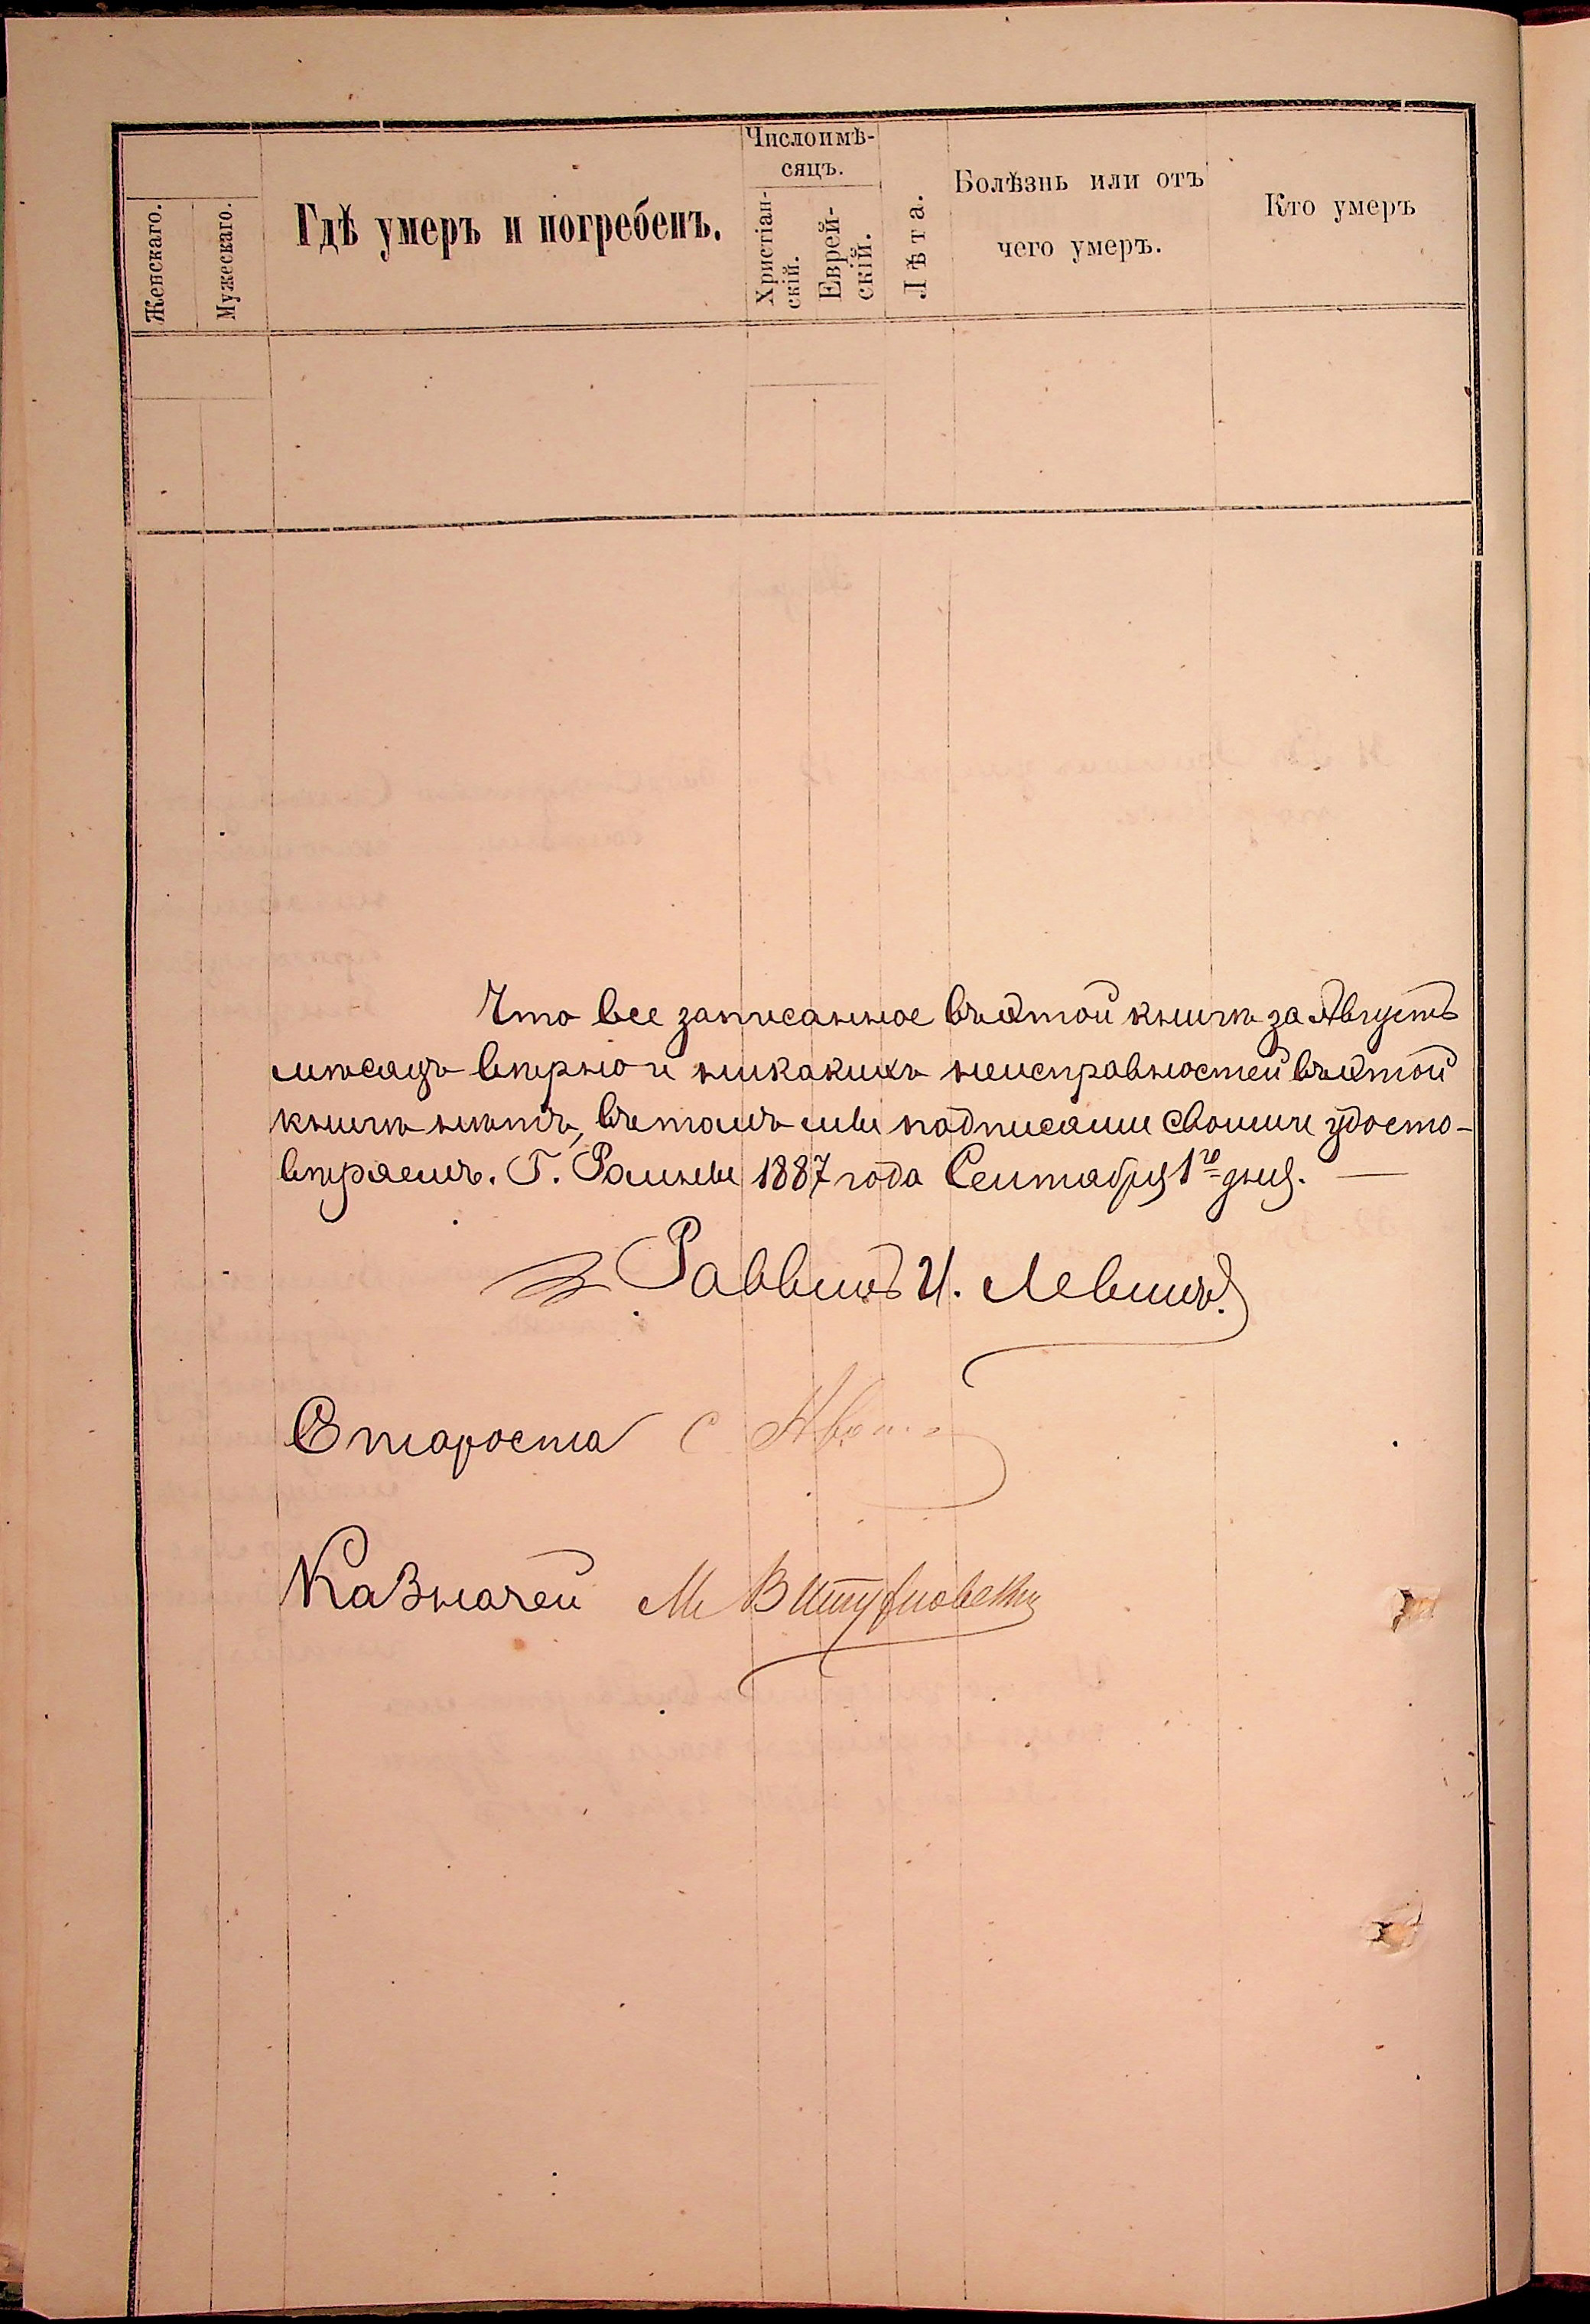 Женскаго.
Мужескаго.
Гдѣ умеръ и погребенъ.
Числоимѣ-
сяцъ.
Христіан-
скій.
Еврей-
скій.
Лѣта.
Болѣзнь или отъ
чего умеръ.
Кто умеръ
Что все записанное въ этой книгѣ за Августъ
мѣсяцъ вѣрно и никакихъ неисправностей въ этой
книгѣ нѣтъ, въ томъ мы подписами своими удосто-
вѣряемъ. Г. Ромны 1887 года Сентября 1го дня.
Раввинъ И. Левинъ
Староста С
Казначей М